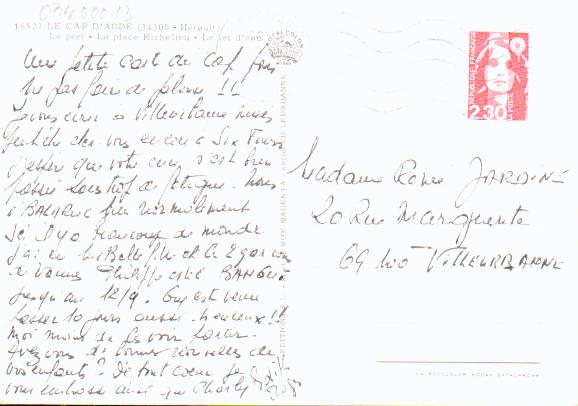 034 000 13
16822 LE CAP D'AGDE (34300 - Hérault)
Le port - La place Richelieu - Le jet d'eau
Une petite carte du Cap pour
ne pas faire de jaloux !!
Je vous écris à Villeurbanne mais
peut être chez vous encore à Six Fours
J'espère que votre cure s'est bien
passée sans trop de fatigue. Nous
à BALARUC bien normalement
Ici il y a beaucoup de monde
J'ai eu la Belle fille et ce
de Vannes Philippe est à
jusqu'au 12/9. Guy est venu
passer 10 jours aussi. heureux !!
moi moins de les voir partir.
Avez vous de bonnes nouvelles de
vos enfants ? De tout coeur je
vous embrasse ainsi que Charly
REPUBLIQUE FRANÇAISE
2,30
LA POSTE
Madame Renée JARDINE
20 Rue Marguerite
69100 VILLEURBANNE